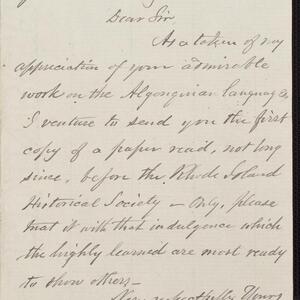 Dear Sir,
As a token of my
appreciation of your admirable
work on the Algonquian languages,
I venture to send you the first
copy of a paper read, not long
since, before the Rhode Island
Historical Society — Only, please
treat it with that indulgence which
the highly learned are most ready
to show others —
Very respectfully Yours